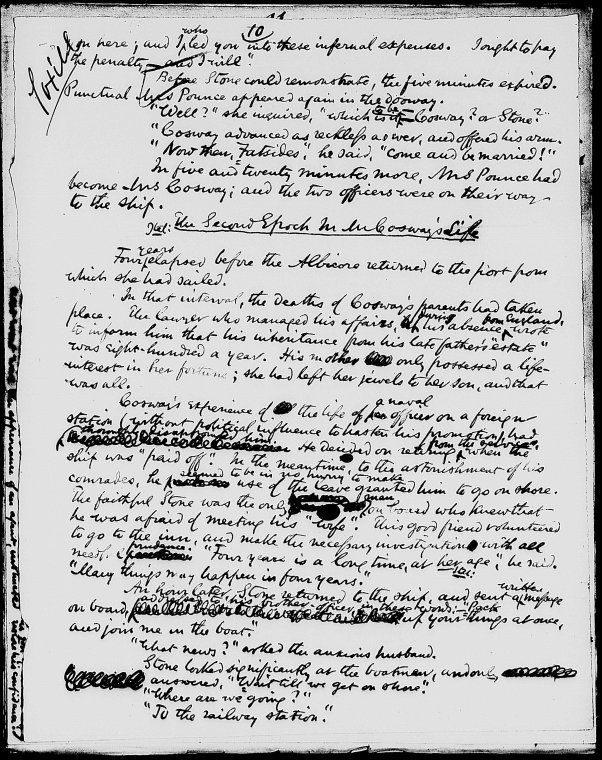 10
on here; and I who led you into these infernal expenses. I ought to pay
the penalty – and I will."
Before Stone could remonstrate, the five minutes expired.
Punctual Mrs Pounce appeared again in the doorway.
"Well?" she inquired, "which is it to be – Cosway? or Stone?"
"Cosway advanced as reckless as ever, and offered his arm.
"Now then, Fatsides," he said, "come and be married!"
In five and twenty minutes more, Mrs Pounce had
become Mrs Cosway; and the two officers were on their way
to the ship.
Ital: The Second Epoch In Mr Cosway's Life
Four years elapsed before the Albicore returned to the port from
which she had sailed.
In that interval, the deaths of Cosway's parents had taken
place. The lawyer who managed his affairs, during his absence from England, wrote
to inform him that his inheritance from his late father's "estate"
was eight-hundred a year. His mother only possessed a life-
interest in her fortune; she had left her jewels to her son, and that
was all.
Cosway's experience of the life of a naval officer on a foreign
station (without political influence to hasten his promotion) had
him. He decided on retiring from the service when the
ship was "paid off". In the meantime, to the astonishment of his
comrades, he seemed to be in no hurry to make use of the leave granted him to go on shore.
The faithful Stone was the only man on board who knew that
he was afraid of meeting his "wife". This good friend volunteered
to go to the inn, and make the necessary investigation with all
needful prudence. "Four years is a long time, at her age," he said.
Ital:
"Many things may happen in four years."
An hour later, Stone returned to the ship, and sent a written message
on board, addressed to his brother-officer, in these words:– "Pack up your things at once,
and join me in the boat."
"What news?" asked the anxious husband.
Stone looked significantly at the boatmen, and only
answered, "Wait till we get on shore."
"Where are we going?"
"To the railway station."